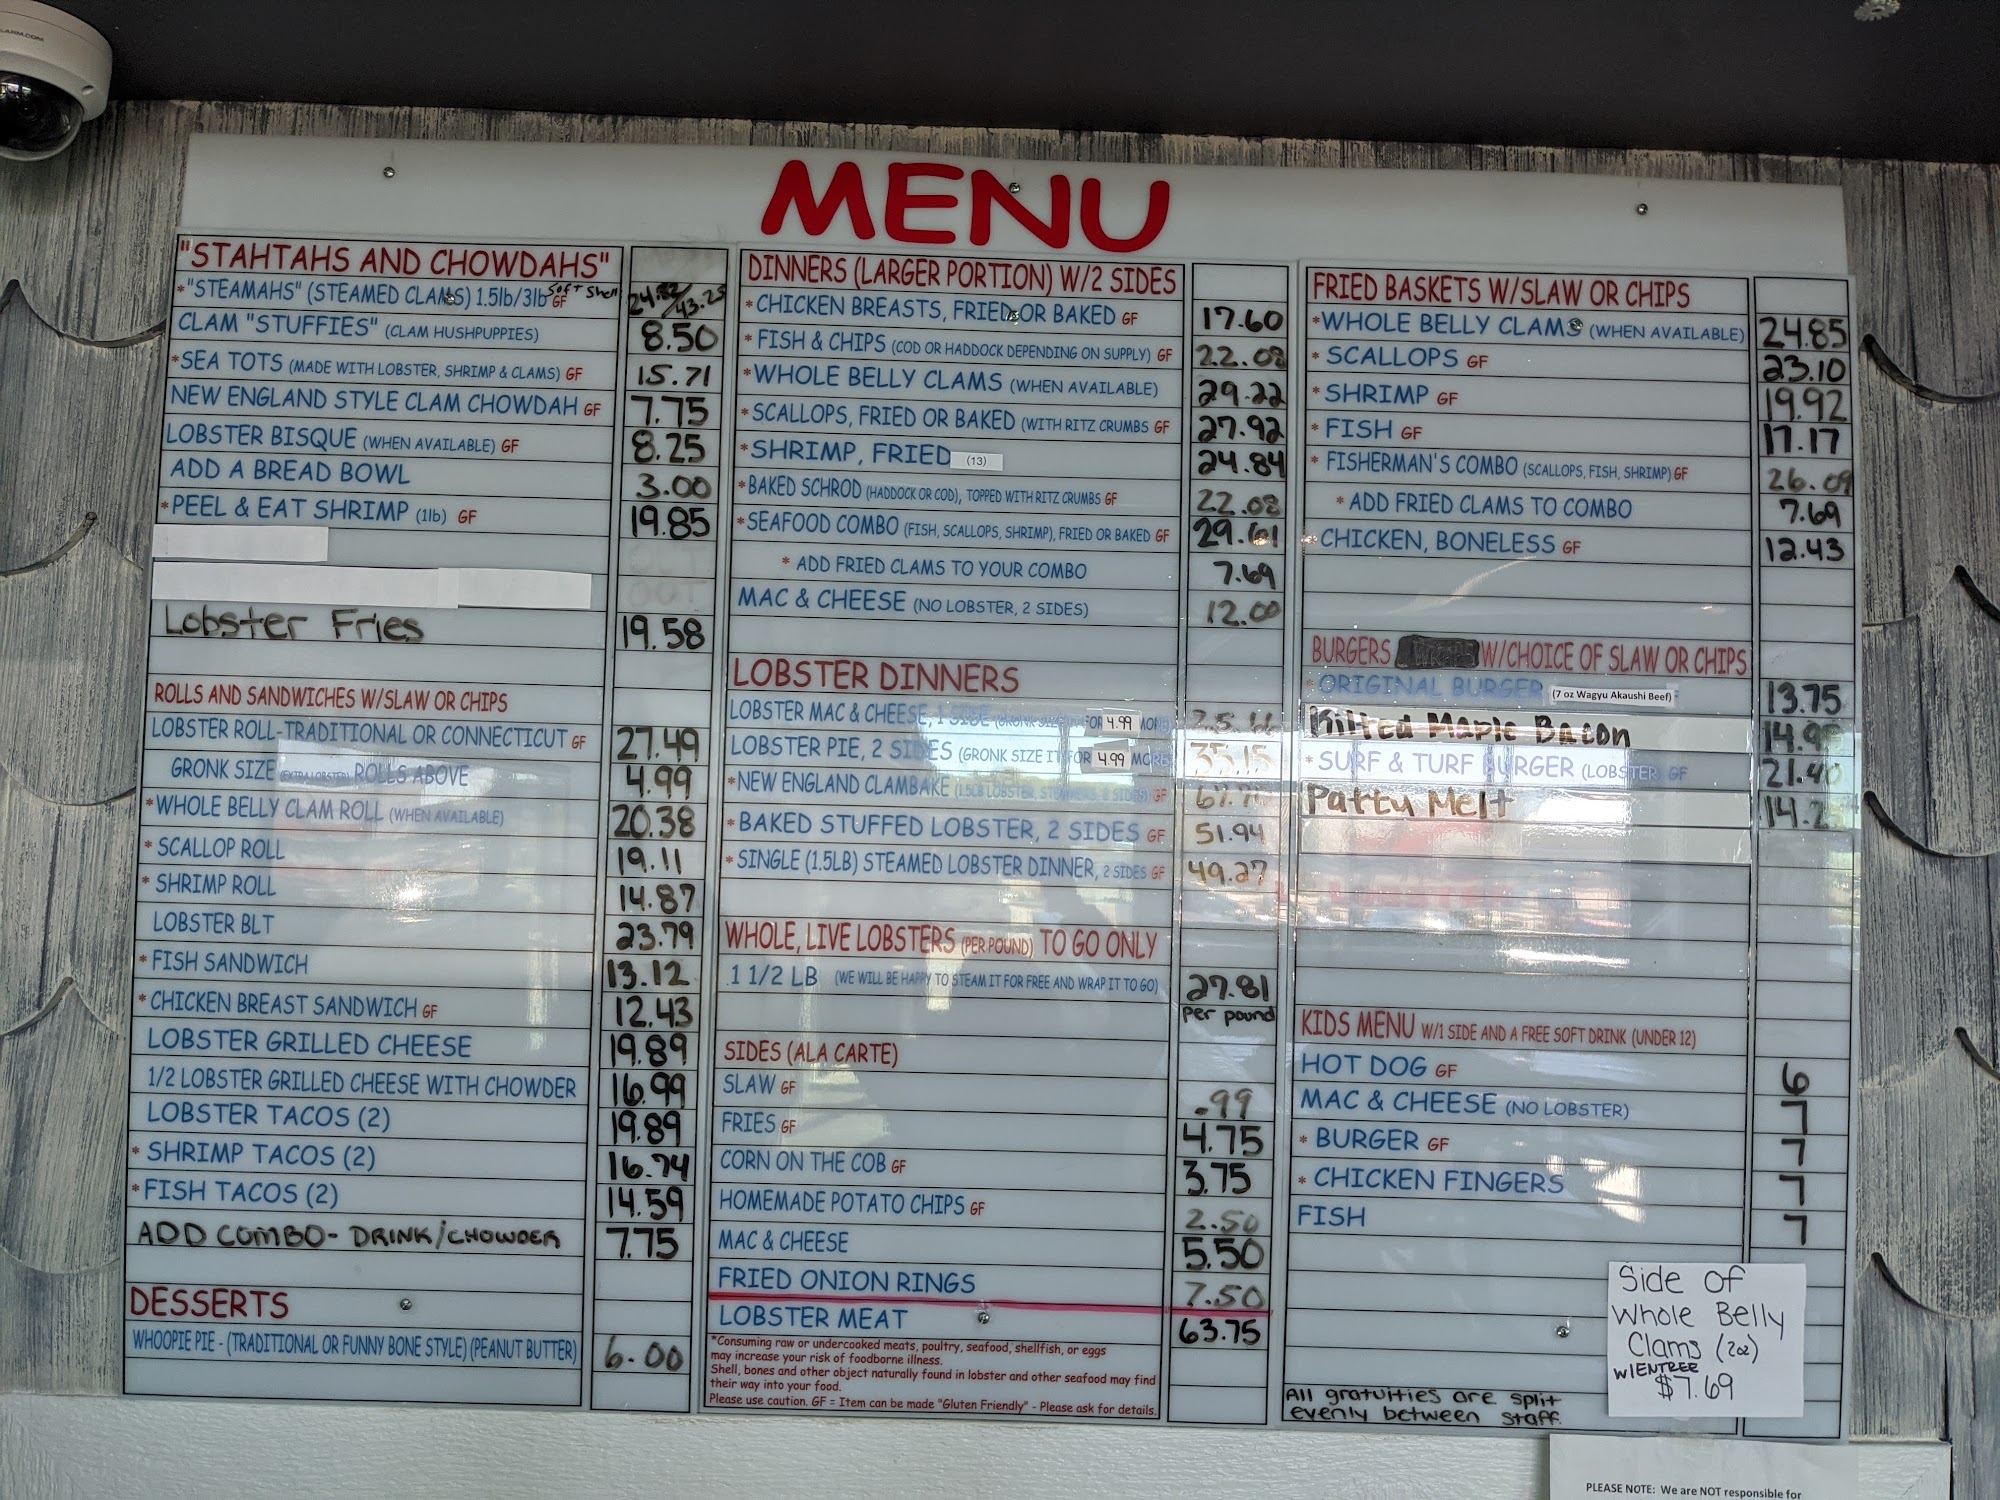 MENU
"STAHTAHS AND CHOWDAHS"
*"STEAMAHS" (STEAMED CLAMS) 1.5lb/3lb GF soft shell 24.82/43.25
CLAM "STUFFIES" (CLAM HUSHPUPPIES) 8.50
*SEA TOTS (MADE WITH LOBSTER, SHRIMP & CLAMS) GF 15.71
NEW ENGLAND STYLE CLAM CHOWDAH GF 7.75
LOBSTER BISQUE (WHEN AVAILABLE) GF 8.25
ADD A BREAD BOWL 3.00
*PEEL & EAT SHRIMP (1lb) GF 19.85
Lobster Fries 19.58
ROLLS AND SANDWICHES W/SLAW OR CHIPS
LOBSTER ROLL-TRADITIONAL OR CONNECTICUT GF 27.49
GRONK SIZE (EXTRA LOBSTER) ROLLS ABOVE 4.99
*WHOLE BELLY CLAM ROLL (WHEN AVAILABLE) 20.38
*SCALLOP ROLL 19.11
*SHRIMP ROLL 14.87
LOBSTER BLT 23.79
*FISH SANDWICH 13.12
*CHICKEN BREAST SANDWICH GF 12.43
LOBSTER GRILLED CHEESE 19.89
1/2 LOBSTER GRILLED CHEESE WITH CHOWDER 16.99
LOBSTER TACOS (2) 19.89
*SHRIMP TACOS (2) 16.74
*FISH TACOS (2) 14.59
ADD COMBO- DRINK/CHOWDER 7.75
DESSERTS
WHOOPIE PIE - (TRADITIONAL OR FUNNY BONE STYLE) (PEANUT BUTTER) 6.00
DINNERS (LARGER PORTION) W/2 SIDES
*CHICKEN BREASTS, FRIED OR BAKED GF 17.60
*FISH & CHIPS (COD OR HADDOCK DEPENDING ON SUPPLY) GF 22.08
*WHOLE BELLY CLAMS (WHEN AVAILABLE) 29.22
*SCALLOPS, FRIED OR BAKED (WITH RITZ CRUMBS GF 27.92
*SHRIMP, FRIED (13) 24.84
*BAKED SCHROD (HADDOCK OR COD), TOPPED WITH RITZ CRUMBS GF 22.08
*SEAFOOD COMBO (FISH, SCALLOPS, SHRIMP), FRIED OR BAKED GF 29.61
* ADD FRIED CLAMS TO YOUR COMBO 7.69
MAC & CHEESE (NO LOBSTER, 2 SIDES) 12.00
LOBSTER DINNERS
LOBSTER MAC & CHEESE, 1 SIDE (GRONK SIZE IT FOR 4.99 MORE)
LOBSTER PIE, 2 SIDES (GRONK SIZE IT FOR 4.99 MORE) 35.15
*NEW ENGLAND CLAMBAKE (1.5LB LOBSTER, STEAMERS, 2 SIDES) GF
*BAKED STUFFED LOBSTER, 2 SIDES GF 51.94
*SINGLE (1.5LB) STEAMED LOBSTER DINNER, 2 SIDES GF 49.27
WHOLE, LIVE LOBSTERS (PER POUND) TO GO ONLY
1 1/2 LB (WE WILL BE HAPPY TO STEAM IT FOR FREE AND WRAP IT TO GO) 27.81
per pound
SIDES (ALA CARTE)
SLAW GF .99
FRIES GF 4.75
CORN ON THE COB GF 3.75
HOMEMADE POTATO CHIPS GF 2.50
MAC & CHEESE 5.50
FRIED ONION RINGS 7.50
LOBSTER MEAT 63.75
*Consuming raw or undercooked meats, poultry, seafood, shellfish, or eggs
may increase your risk of foodborne illness.
Shell, bones and other object naturally found in lobster and other seafood may find
their way into your food.
Please use caution. GF = Item can be made "Gluten Friendly" - Please ask for details.
FRIED BASKETS W/SLAW OR CHIPS
*WHOLE BELLY CLAMS (WHEN AVAILABLE) 24.85
* SCALLOPS GF 23.10
*SHRIMP GF 19.92
* FISH GF 17.17
* FISHERMAN'S COMBO (SCALLOPS, FISH, SHRIMP) GF 26.09
* ADD FRIED CLAMS TO COMBO 7.69
*CHICKEN, BONELESS GF 12.43
BURGERS W/CHOICE OF SLAW OR CHIPS
*ORIGINAL BURGER (7 oz Wagyu Akaushi Beef) 13.75
Kilted Maple Bacon
*SURF & TURF BURGER (LOBSTER) GF 21.40
Patty Melt
KIDS MENU W/1 SIDE AND A FREE SOFT DRINK (UNDER 12)
HOT DOG GF 6
MAC & CHEESE (NO LOBSTER) 7
* BURGER GF 7
* CHICKEN FINGERS 7
FISH 7
Side of
Whole Belly
Clams (2oz)
W/ENTREE
$7.69
All gratuities are split
evenly between staff.
PLEASE NOTE: We are NOT responsible for